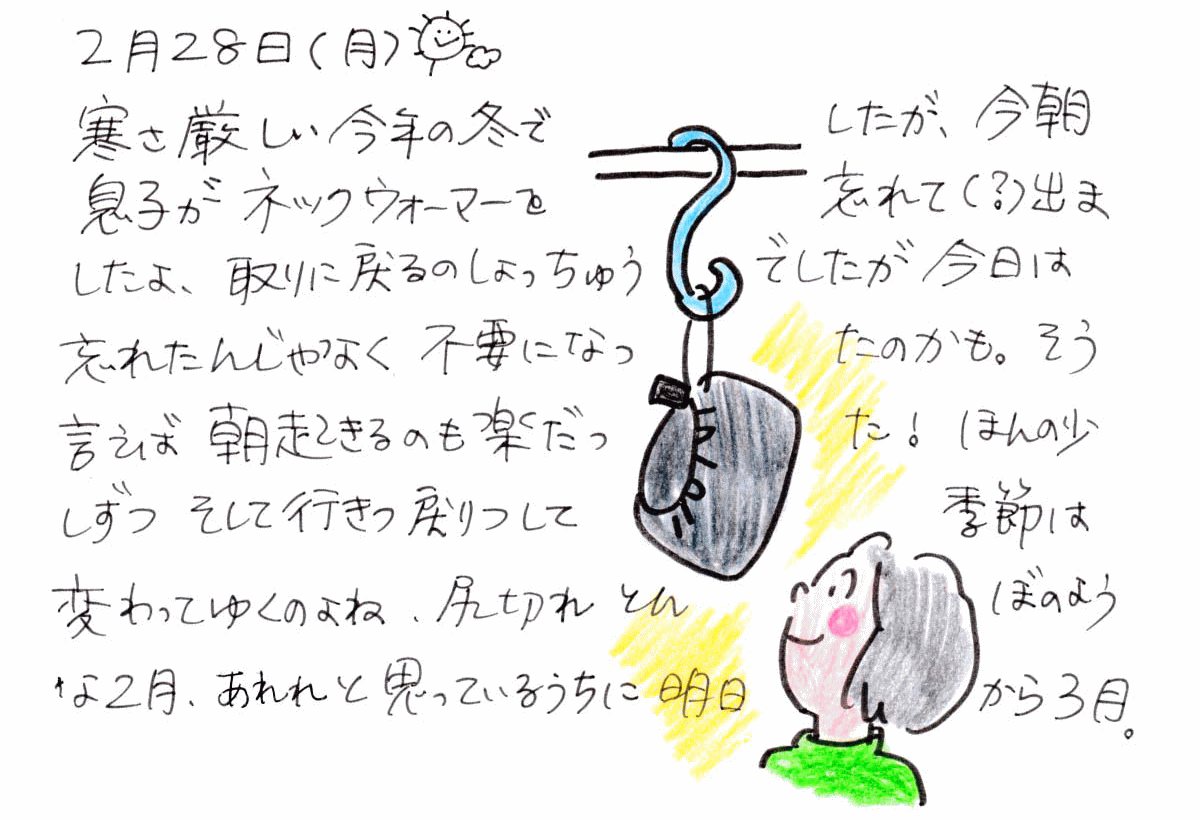 2月28日(月)
寒さ厳しい今年の冬でしたが、今朝
息子がネックウォーマーを忘れて(?)出ま
したよ、取りに戻るのしょっちゅうでしたが今日は
忘れたんじゃなく不要になったのかも。そう
言えば朝起きるのも楽だった!ほんの少
しずつそして行きつ戻りつして季節は
変わってゆくのよね、尻切れとんぼのよう
な2月、あれれと思っているうちに明日から3月。